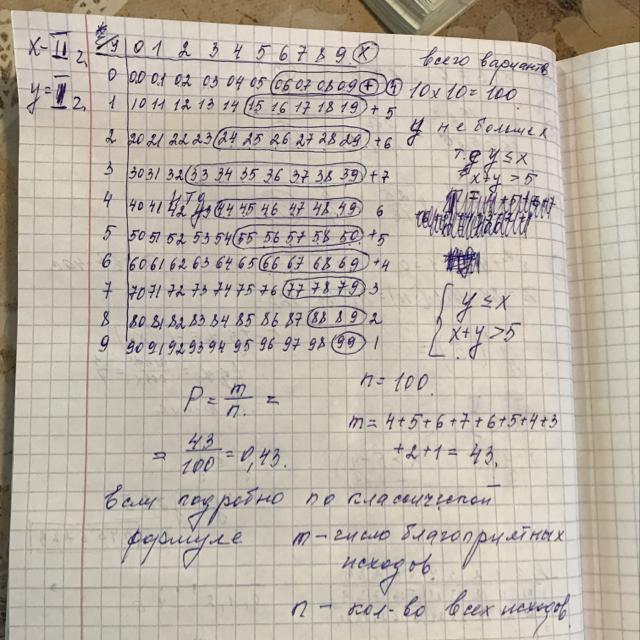 x - II г,
y = I г,
y 0 1 2 3 4 5 6 7 8 9 x
0 00 01 02 03 04 05 06 07 08 09 + 4
1 10 11 12 13 14 15 16 17 18 19 + 5
2 20 21 22 23 24 25 26 27 28 29 + 6
3 30 31 32 33 34 35 36 37 38 39 + 7
4 40 41 42 43 44 45 46 47 48 49 6
5 50 51 52 53 54 55 56 57 58 50 + 5
6 60 61 62 63 64 65 66 67 68 69 + 4
7 70 71 72 73 74 75 76 77 78 79 3
8 80 81 82 83 84 85 86 87 88 89 2
9 90 91 92 93 94 95 96 97 98 99 1
всего вариантв
10 x 10 = 100
y не больше x
т.е y ≤ x
x + y > 5
y ≤ x
x + y > 5
P = m/n =
= 43/100 = 0,43.
n = 100.
m = 4+5+6+7+6+5+4+3
+2+1 = 43,
если подробно по классической
формуле
m - число благоприятных
исходов.
n - кол-во всех исходов